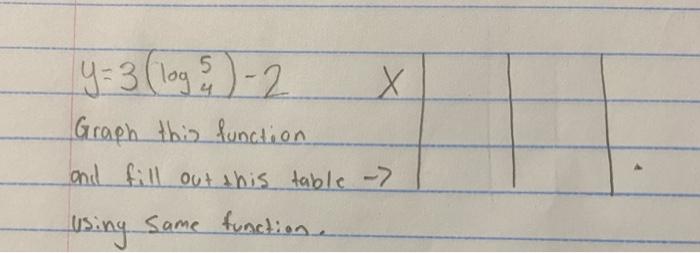 y=3(log⁵₄)-2 X
Graph this function
and fill out this table ->
using same function.